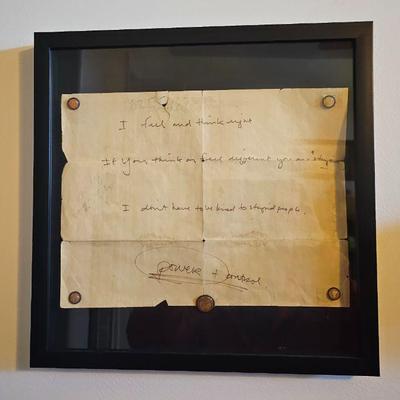 I feel and think right
If you think or feel different you are stupid
I don't have to be kind to stupid people.
power + control